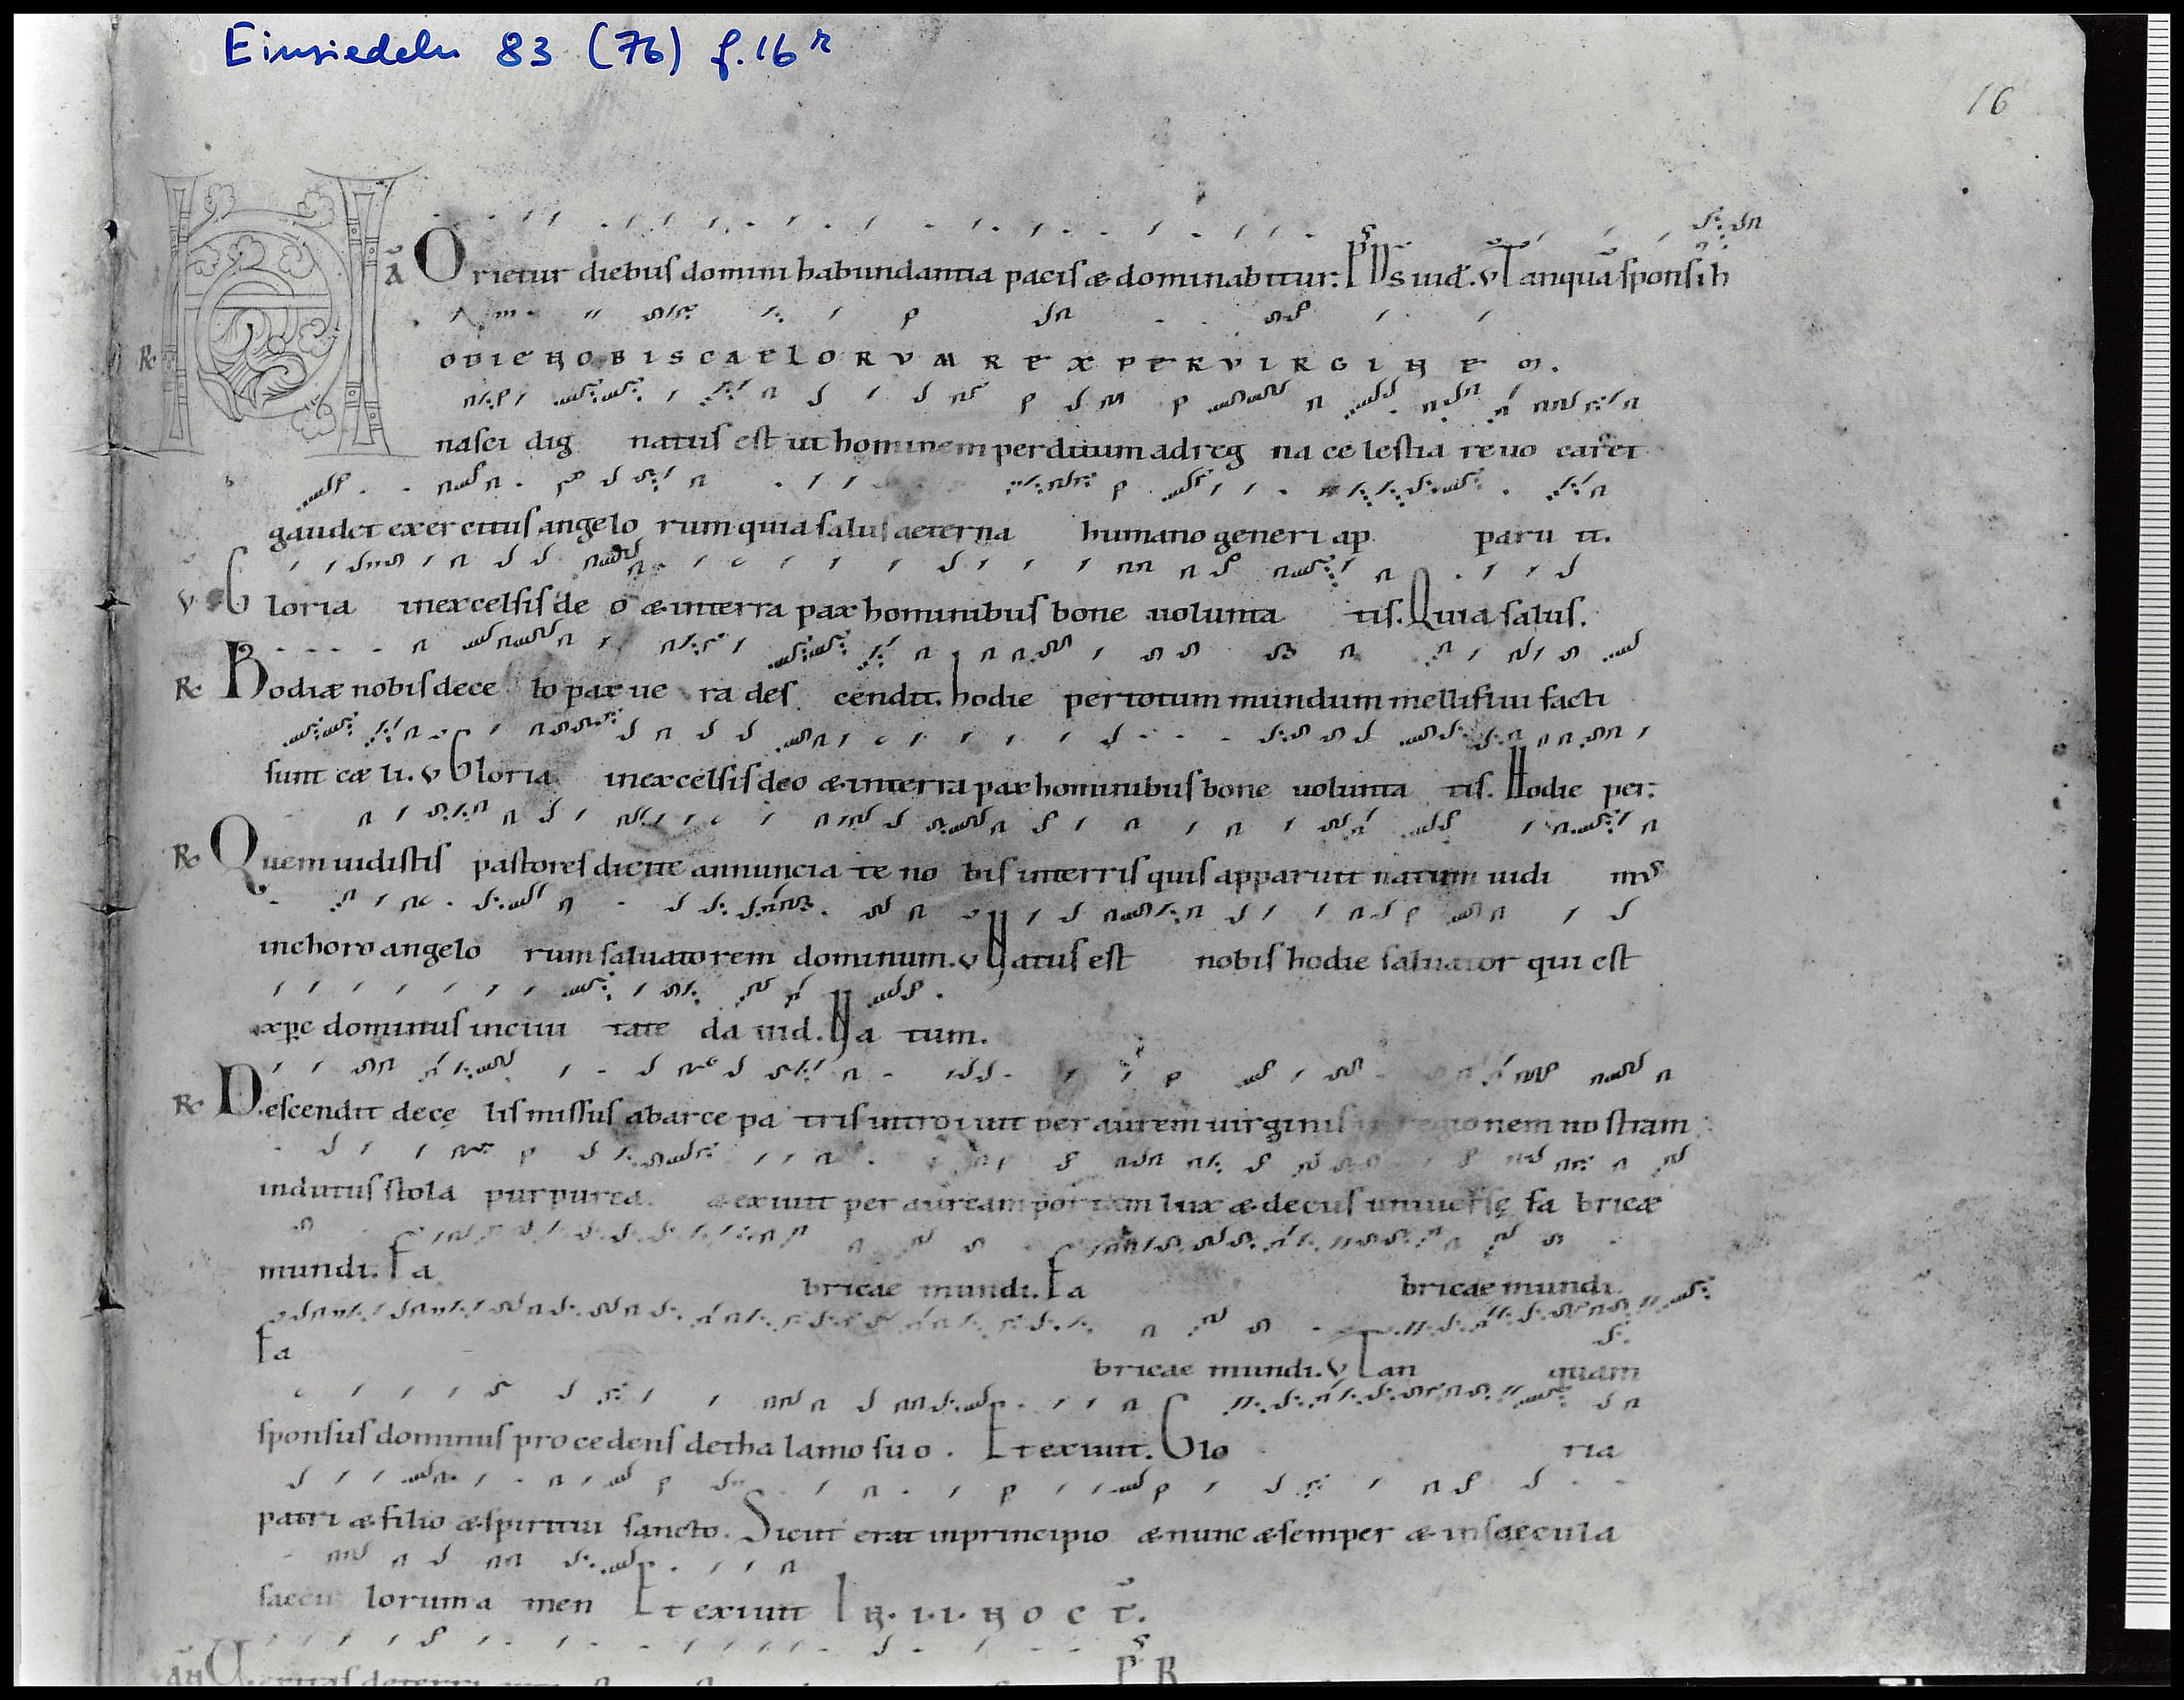 Einsiedeln 83 (76) f.16r
16
ā Orietur diebus domini habundantia pacis & dominabitur: Ps D̄s iud. v Tanquā sponsi h
R HODIE NOBIS CAELORVM REX PER VIRGINEM.
nasci dig natus est ut hominem perditum ad reg na ce lestia reuo caret
gaudet exercitus angelo rum quia salus aeterna humano generi ap paru it.
v Gloria inexcelsis de o & interra pax hominibus bone uolunta tis. Quia salus.
R Hodiæ nobis dece lo pax ue ra des cendit. hodie per totum mundum melliflui facti
sunt cæ li. v Gloria inexcelsis deo & interra pax hominibus bone uolunta tis. Hodie per:
R Quem uidistis pastores dicite annuncia te no bis interris quis apparuit natum uidi ms
inchoro angelo rum saluatorem dominum. v Natus est nobis hodie saluator qui est
xpc dominus inciui tate da uid. Na tum.
R Descendit decę lis missus abarce pa tris introiuit per aurem uirginis regionem no stram
indutus stola purpurea & exiuit per auream portam lux & decus uniuersę fa bricæ
mundi. Fa bricae mundi. Fa bricae mundi.
Fa bricae mundi. v Tan quam
sponsus dominus procedens detha lamo suo. Et exiuit. Glo ria
patri & filio & spiritui sancto. Sicut erat inprincipio & nunc & semper & in saecula
saecu lorum a men Et exiuit IN .I.I. NOCT̄.
AN Ueritas deterri Ps B